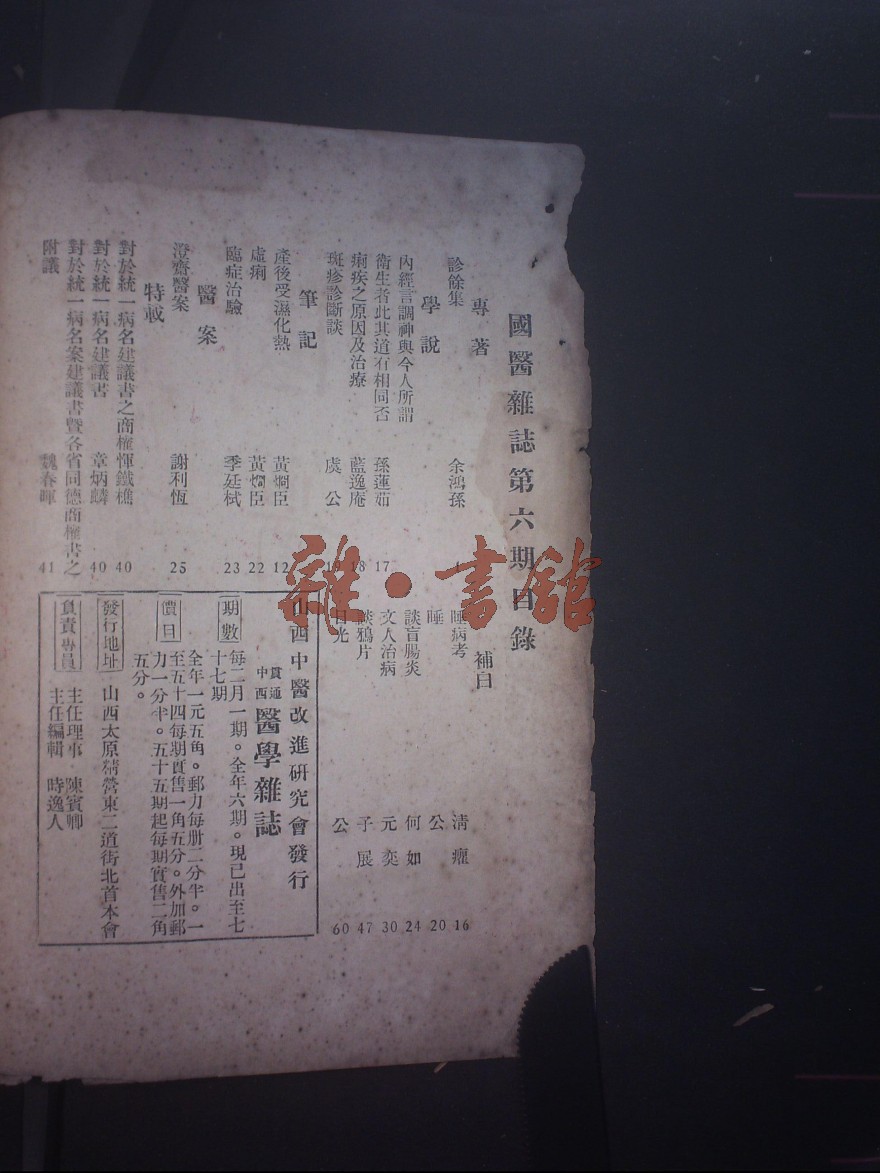 國醫雜誌第六期目錄
專著
診餘集 余鴻孫 1
學說
內經言調神與今人所謂
衛生者此其道有相同否 孫蓮茹 17
痢疾之原因及治療 藍逸庵 18
斑疹診斷談 虞公
筆記
產後受濕化熱 黃燗臣 12
虛痢 黃燗臣 22
臨症治驗 季廷栻 23
醫案
澄齋醫案 謝利恆 25
特載
對於統一病名建議書之商榷 惲鐵樵 40
對於統一病名建議書 章炳麟 40
對於統一病名案建議書暨各省同德商榷書之
附議 魏春暉 41
補白
睡病考 清癯 16
睡 公 20
談盲腸炎 何如 24
文人治病 元奕 30
談鴉片 子展 47
日光 公 60
山西中醫改進研究會發行
貫通
中西
醫學雜誌
期數 每二月一期。全年六期。現已出至七
十七期
價目 全年一元五角。郵力每册二分半。一
至五十四每期實售一角五分。外加郵
力一分半。五十五期起每期實售二角
五分。
發行地址 山西太原精營東二道街北首本會
負責專員 主任理事 陳賓卿
主任編輯 時逸人
雜·書館